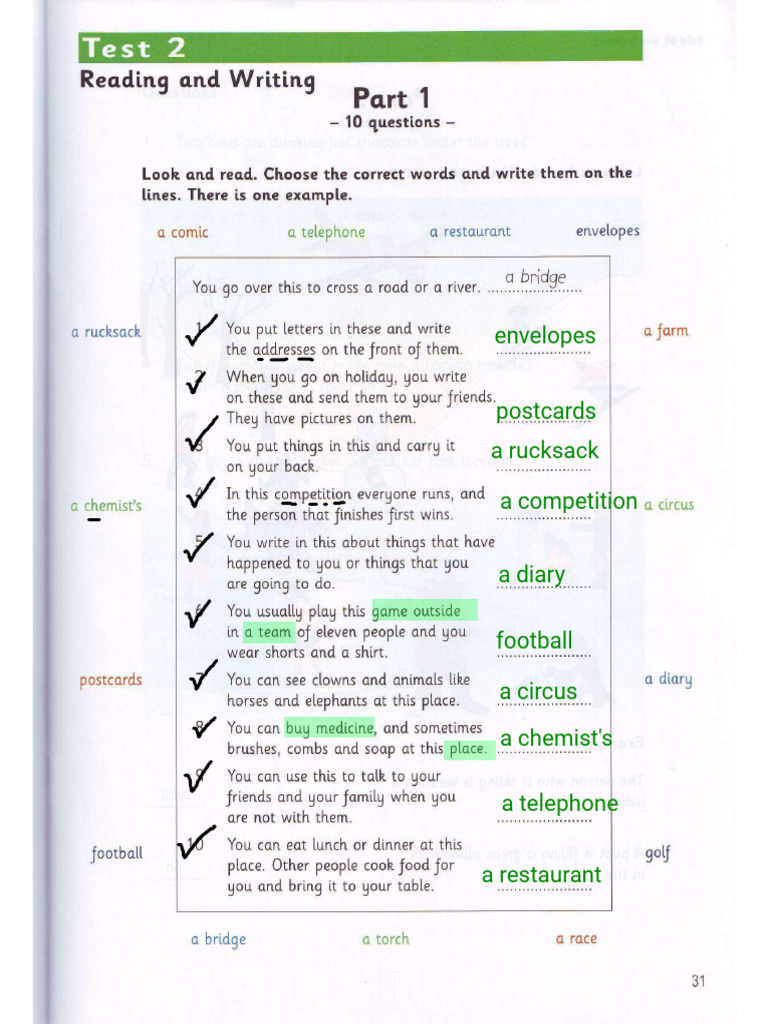 Test 2
Reading and Writing
Part 1
– 10 questions –
Look and read. Choose the correct words and write them on the
lines. There is one example.
a comic a telephone a restaurant envelopes
You go over this to cross a road or a river. a bridge
a rucksack
a farm
1 You put letters in these and write
the addresses on the front of them. envelopes
2 When you go on holiday, you write
on these and send them to your friends.
They have pictures on them. postcards
3 You put things in this and carry it
on your back. a rucksack
a chemist's
a circus
4 In this competition everyone runs, and
the person that finishes first wins. a competition
5 You write in this about things that have
happened to you or things that you
are going to do. a diary
6 You usually play this game outside
in a team of eleven people and you
wear shorts and a shirt. football
postcards
a diary
7 You can see clowns and animals like
horses and elephants at this place. a circus
8 You can buy medicine, and sometimes
brushes, combs and soap at this place. a chemist's
9 You can use this to talk to your
friends and your family when you
are not with them. a telephone
football
golf
10 You can eat lunch or dinner at this
place. Other people cook food for
you and bring it to your table. a restaurant
a bridge a torch a race
31